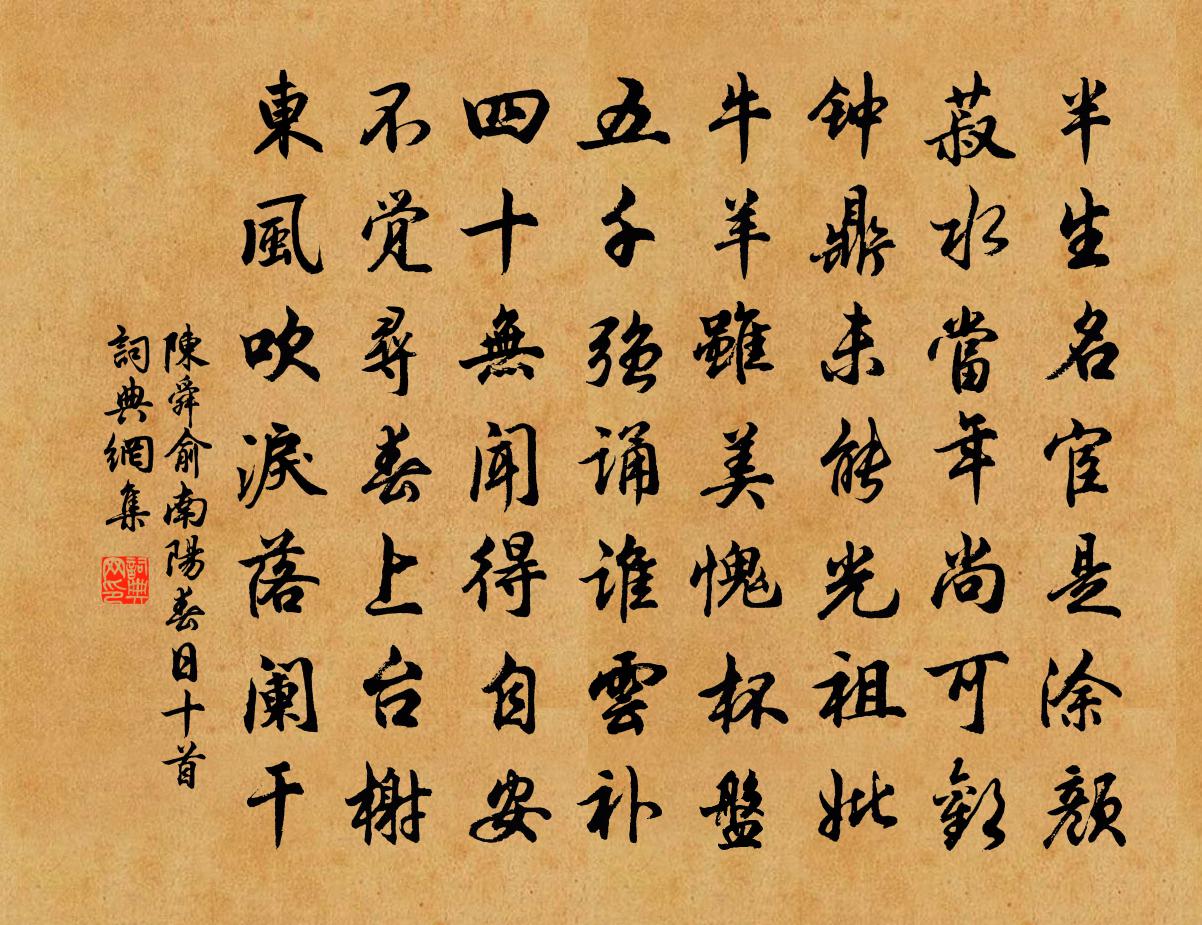 半生名宦是涂颜
菽水當年尚可歡
钟鼎未能光祖妣
牛羊雖美愧杯盤
五千强诵谁雲补
四十無闻得自安
不觉尋春上台榭
東風吹淚落阑干
陳舜俞南陽春日十首
詞典網集
詞典网印